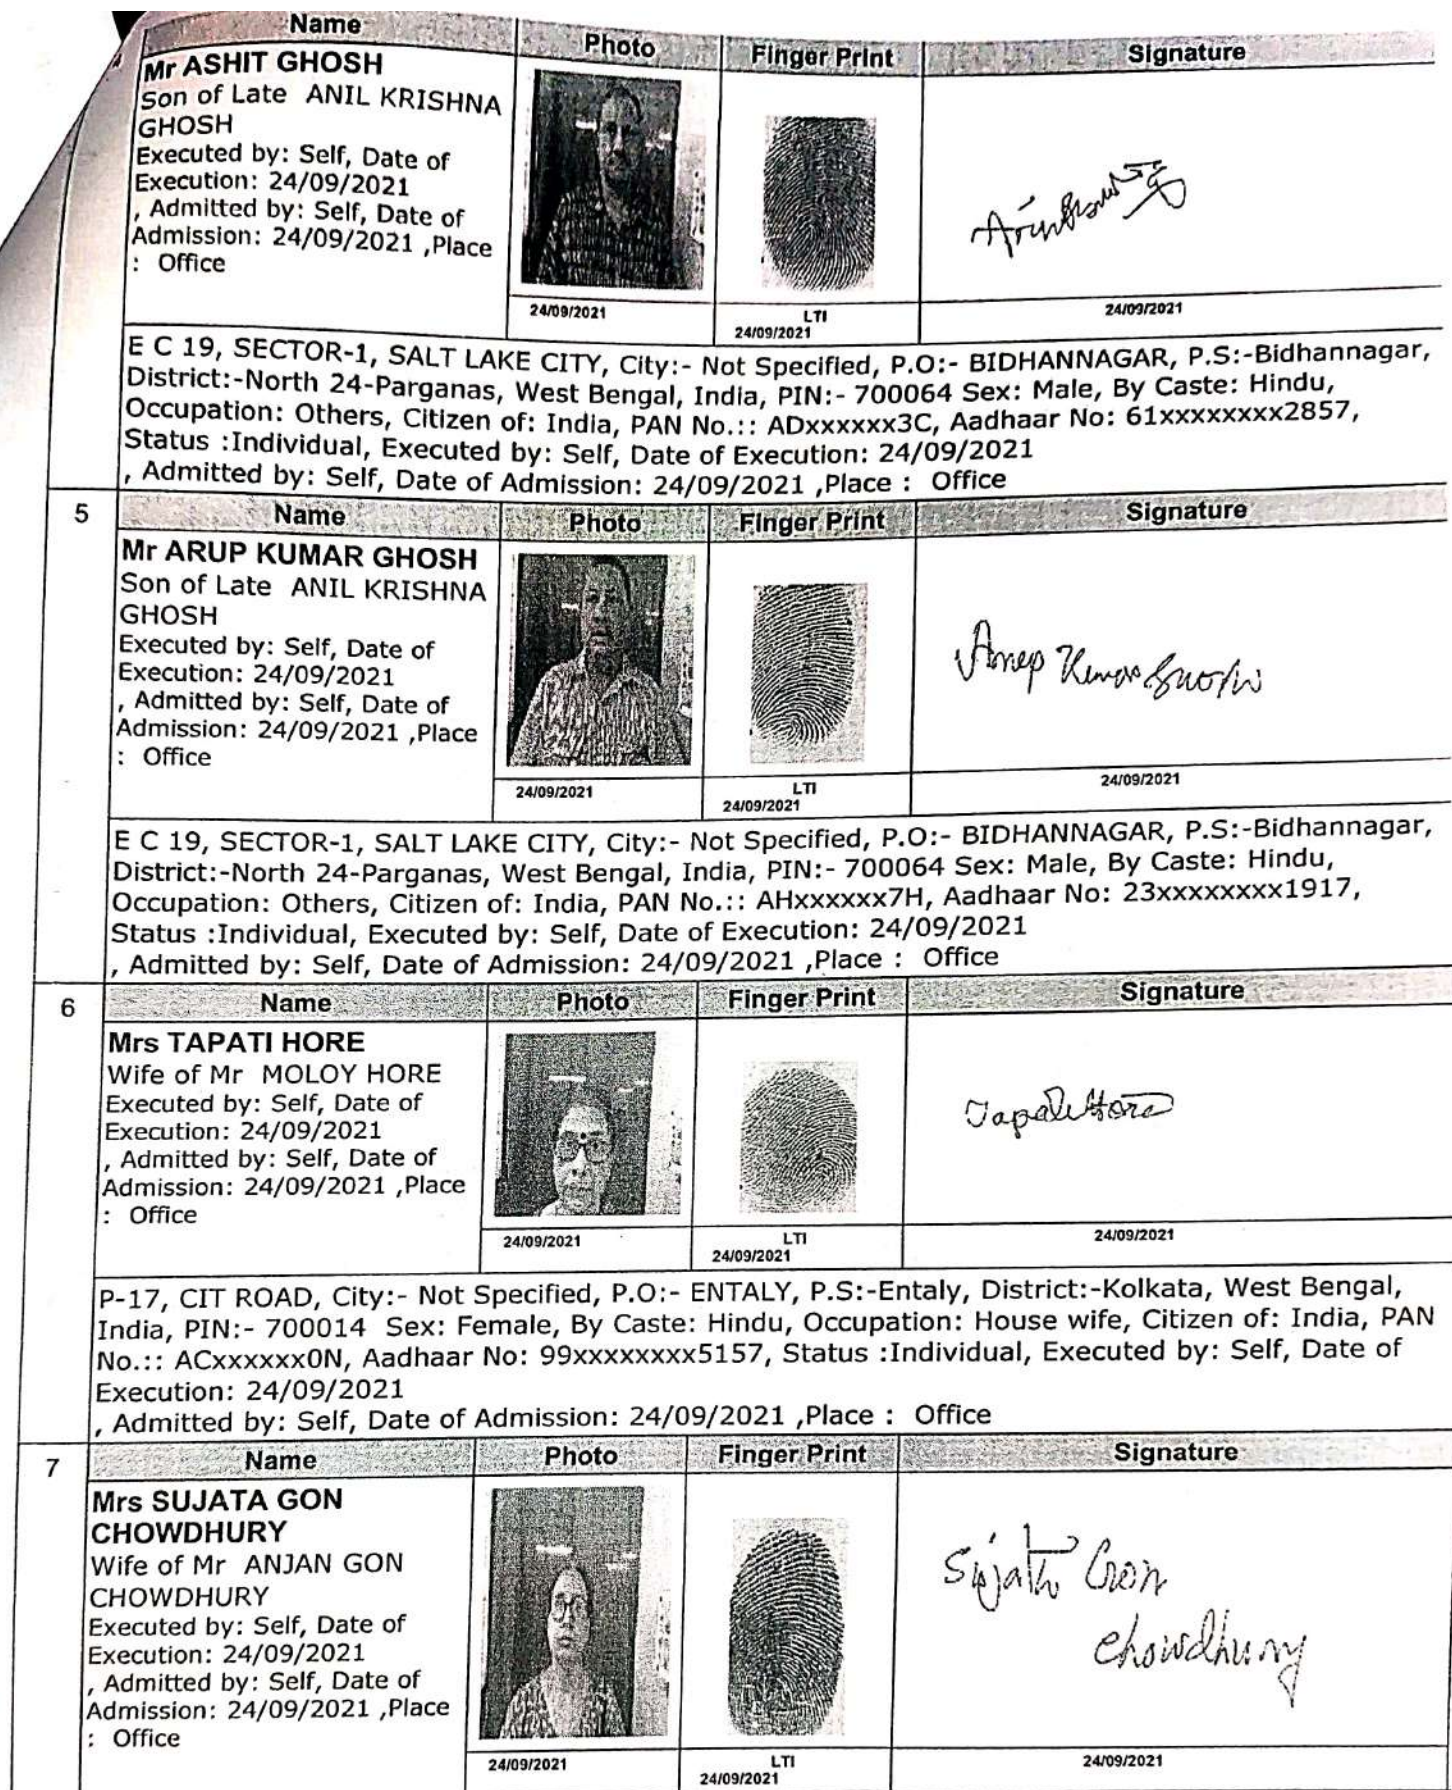 Name Photo Finger Print Signature
Mr ASHIT GHOSH
Son of Late ANIL KRISHNA
GHOSH
Executed by: Self, Date of
Execution: 24/09/2021
, Admitted by: Self, Date of
Admission: 24/09/2021 ,Place
: Office
24/09/2021 LTI 24/09/2021
24/09/2021
E C 19, SECTOR-1, SALT LAKE CITY, City:- Not Specified, P.O:- BIDHANNAGAR, P.S:-Bidhannagar,
District:-North 24-Parganas, West Bengal, India, PIN:- 700064 Sex: Male, By Caste: Hindu,
Occupation: Others, Citizen of: India, PAN No.:: ADxxxxxx3C, Aadhaar No: 61xxxxxxxx2857,
Status :Individual, Executed by: Self, Date of Execution: 24/09/2021
, Admitted by: Self, Date of Admission: 24/09/2021 ,Place : Office
5 Name Photo Finger Print Signature
Mr ARUP KUMAR GHOSH
Son of Late ANIL KRISHNA
GHOSH
Executed by: Self, Date of
Execution: 24/09/2021
, Admitted by: Self, Date of
Admission: 24/09/2021 ,Place
: Office
Arup Kumar Ghosh
24/09/2021 LTI 24/09/2021
24/09/2021
E C 19, SECTOR-1, SALT LAKE CITY, City:- Not Specified, P.O:- BIDHANNAGAR, P.S:-Bidhannagar,
District:-North 24-Parganas, West Bengal, India, PIN:- 700064 Sex: Male, By Caste: Hindu,
Occupation: Others, Citizen of: India, PAN No.:: AHxxxxxx7H, Aadhaar No: 23xxxxxxxx1917,
Status :Individual, Executed by: Self, Date of Execution: 24/09/2021
, Admitted by: Self, Date of Admission: 24/09/2021 ,Place : Office
6 Name Photo Finger Print Signature
Mrs TAPATI HORE
Wife of Mr MOLOY HORE
Executed by: Self, Date of
Execution: 24/09/2021
, Admitted by: Self, Date of
Admission: 24/09/2021 ,Place
: Office
Tapati Hore
24/09/2021 LTI 24/09/2021
24/09/2021
P-17, CIT ROAD, City:- Not Specified, P.O:- ENTALY, P.S:-Entaly, District:-Kolkata, West Bengal,
India, PIN:- 700014 Sex: Female, By Caste: Hindu, Occupation: House wife, Citizen of: India, PAN
No.:: ACxxxxxx0N, Aadhaar No: 99xxxxxxxx5157, Status :Individual, Executed by: Self, Date of
Execution: 24/09/2021
, Admitted by: Self, Date of Admission: 24/09/2021 ,Place : Office
7 Name Photo Finger Print Signature
Mrs SUJATA GON
CHOWDHURY
Wife of Mr ANJAN GON
CHOWDHURY
Executed by: Self, Date of
Execution: 24/09/2021
, Admitted by: Self, Date of
Admission: 24/09/2021 ,Place
: Office
Sujata Gon
Chowdhury
24/09/2021 LTI 24/09/2021
24/09/2021